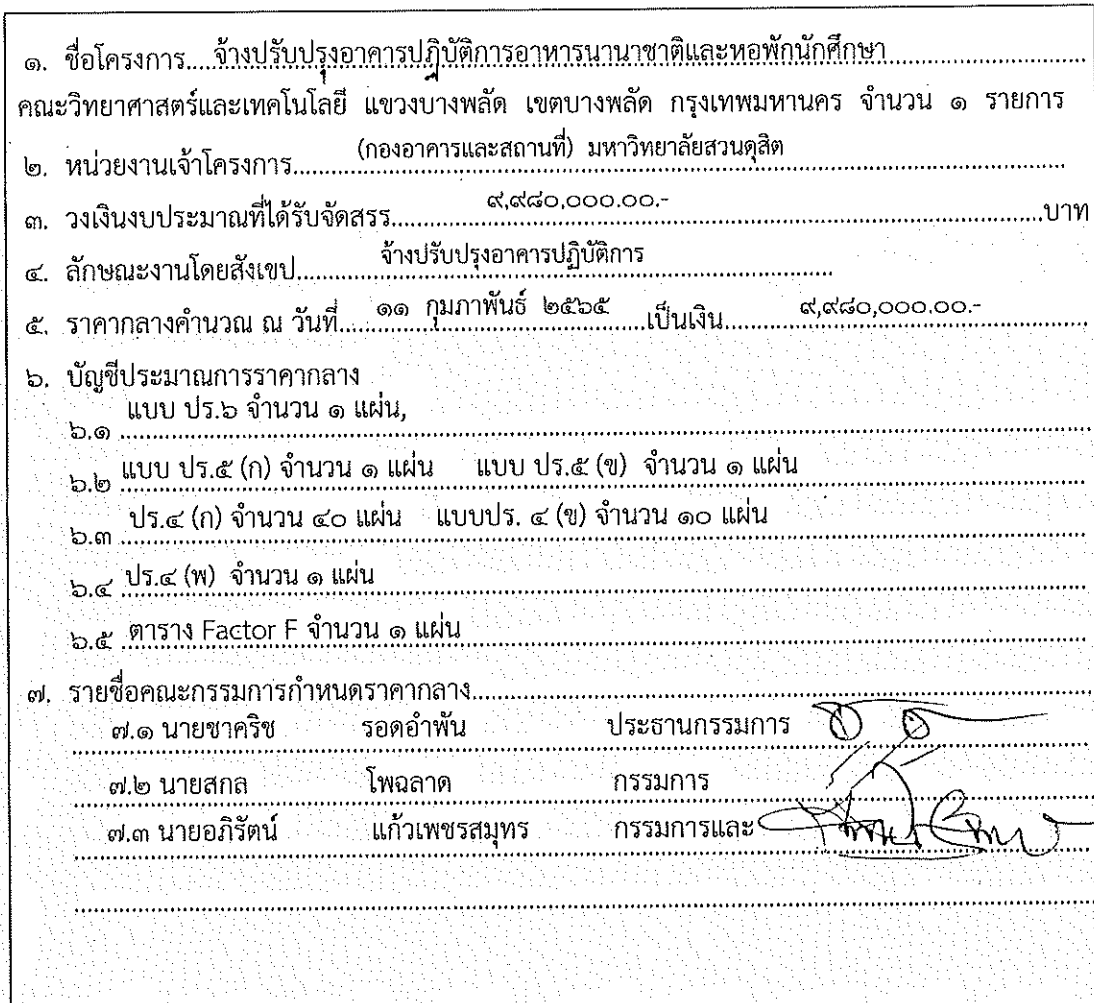 ๑. ชื่อโครงการ....จ้างปรับปรุงอาคารปฏิบัติการอาหารนานาชาติและหอพักนักศึกษา
คณะวิทยาศาสตร์และเทคโนโลยี แขวงบางพลัด เขตบางพลัด กรุงเทพมหานคร จำนวน ๑ รายการ
๒. หน่วยงานเจ้าโครงการ (กองอาคารและสถานที่) มหาวิทยาลัยสวนดุสิต
๓. วงเงินงบประมาณที่ได้รับจัดสรร ๙,๙๘๐,๐๐๐.๐๐.- บาท
๔. ลักษณะงานโดยสังเขป จ้างปรับปรุงอาคารปฏิบัติการ
๕. ราคากลางคำนวณ ณ วันที่ ๑๑ กุมภาพันธ์ ๒๕๖๕ เป็นเงิน ๙,๙๘๐,๐๐๐.๐๐.-
๖. บัญชีประมาณการราคากลาง
๖.๑ แบบ ปร.๖ จำนวน ๑ แผ่น,
๖.๒ แบบ ปร.๕ (ก) จำนวน ๑ แผ่น แบบ ปร.๕ (ข) จำนวน ๑ แผ่น
๖.๓ ปร.๔ (ก) จำนวน ๔๐ แผ่น แบบปร. ๔ (ข) จำนวน ๑๐ แผ่น
๖.๔ ปร.๔ (พ) จำนวน ๑ แผ่น
๖.๕ ตาราง Factor F จำนวน ๑ แผ่น
๗. รายชื่อคณะกรรมการกำหนดราคากลาง
๗.๑ นายชาคริช รอดอำพัน ประธานกรรมการ
๗.๒ นายสกล โพฉลาด กรรมการ
๗.๓ นายอภิรัตน์ แก้วเพชรสมุทร กรรมการและ